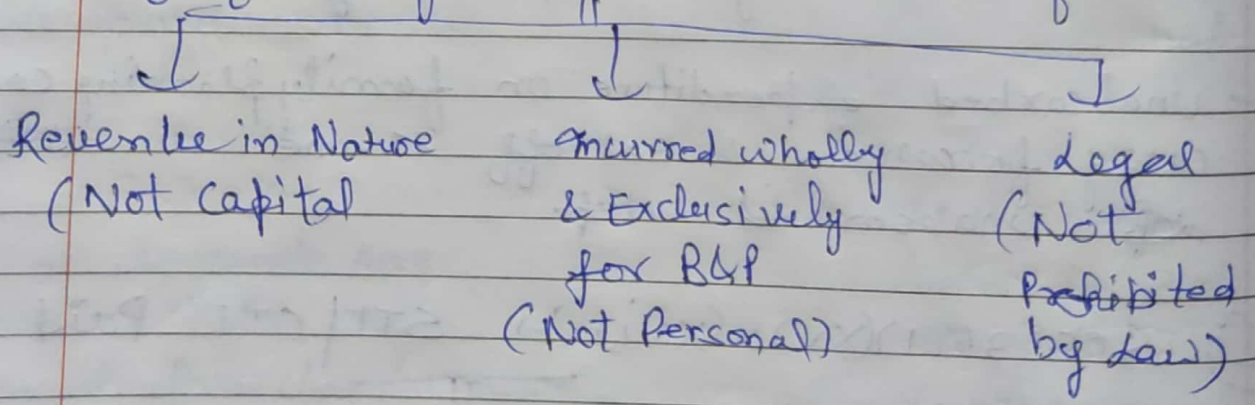 Revenue in Nature
(Not Capital
Incurred wholly
& Exclusively
for B&P
(Not Personal)
Legal
(Not
Prohibited
by Law)